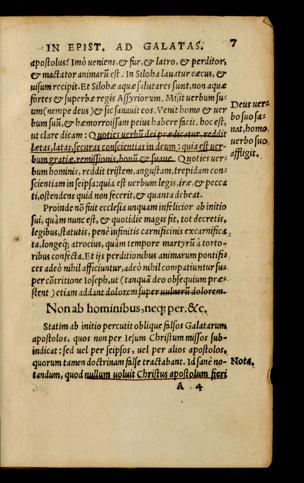 IN EPIST. AD GALATAS. 7
apostolus? Imò ueniens & fur, & latro, & perditor,
& mactator animarū est. In Siloha lauatur cæcus, &
uisum recipit. Et Silohæ aquæ salutares sunt, non aquæ
fortes & superbæ regis Assyriorum. Misit uerbum su-
um (nempe deus) & sic sanauit eos. Venit homo & uer
bum suū, & hæmorroissam peius habere facit. hoc est,
ut clare dicam: Quoties uerbū dei prædicatur, reddit
lætas, latas, securas conscientias in deum: quia est uer-
bum gratiæ, remissionis, bonū & suaue. Quoties uer-
bum hominis, reddit tristem, angustam, trepidam con-
scientiam in seipsa: quia est uerbum legis, iræ, & pecca
ti, ostendens quid non fecerit, & quanta debeat.
Proinde nō fuit ecclesia unquam infelicior ab initio
sui, quàm nunc est, & quotidie magis fit, tot decretis,
legibus, statutis, penè infinitis carnificinis excarnifica
ta, longeq; atrocius, quàm tempore martyrū à torto-
ribus confecta. Et ijs perditionibus animarum pontifi-
ces adeò nihil afficiuntur, adeò nihil compatiuntur su-
per cōtritione Ioseph, ut (tanquā deo obsequium præ-
stent) etiam addant dolorem super uulnerū dolorem.
Non ab hominibus, neq; per. &c.
Statim ab initio percutit oblique falsos Galatarum
apostolos, quos non per Iesum Christum missos sub-
indicat: sed uel per seipsos, uel per alios apostolos,
quorum tamen doctrinam falsè tractabant. Id sanè no-
tandum, quod nullum uoluit Christus apostolum fieri
A 4
Deus uer-
bo suo sa-
nat, homo
uerbo suo
affligit.
Nota.